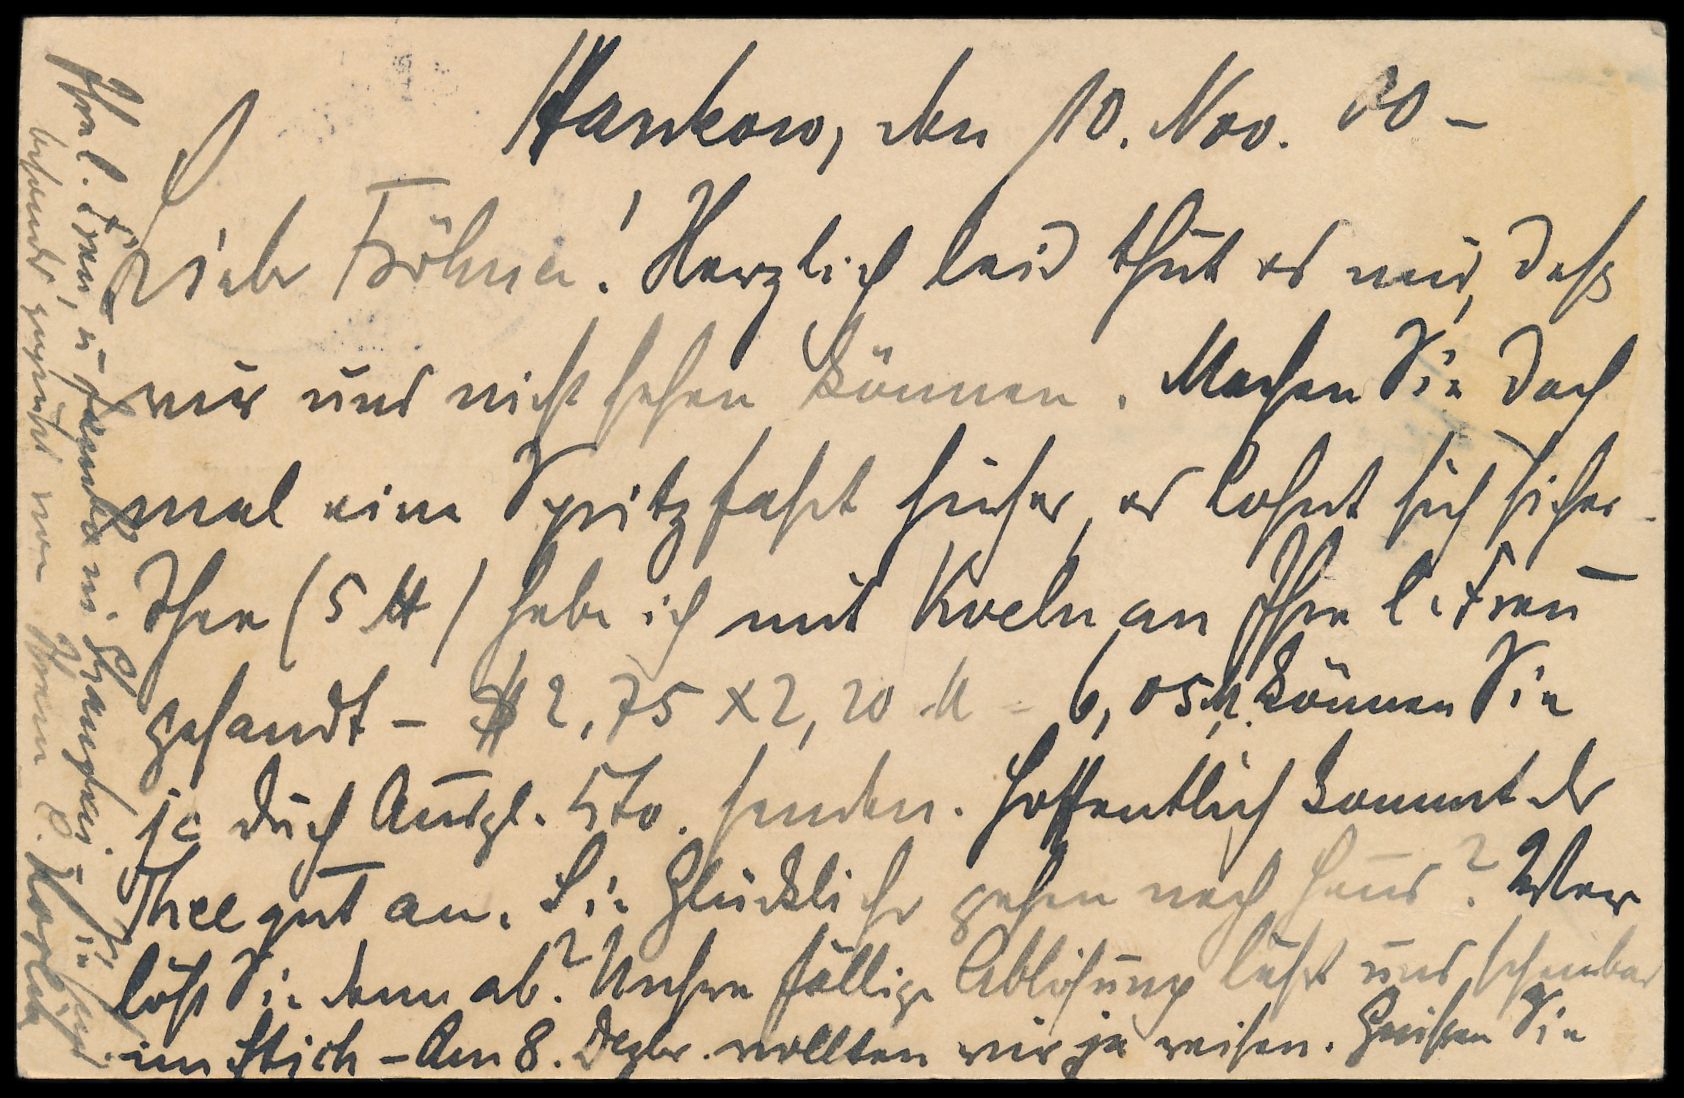 Hankow, den 10. Nov. 00 –
Lieber Fröhner! Herzlich leid thut es mir, daß
wir uns nicht sehen können. Machen Sie doch
mal eine Spritzfahrt hierher, es lohnt sich sicher.
Thee (5 ℔) habe ich mit an Ihre l. Frau
gesandt – $ 2,75 x 2,20 M = 6,05 M. können Sie
ja durch Ausgl. Kto. senden. Hoffentlich kommt der
Thee gut an. Sie Glücklicher gehen nach Haus? Wer
löst Sie denn ab? Unsre fällige Ablösung läßt uns scheinbar
im Stich – Am 8. Dezbr. wollten wir ja reisen. Grüßen Sie
Ihre l. Frau, u. in Shanghai. Sie
gegrüßt von Ihrem